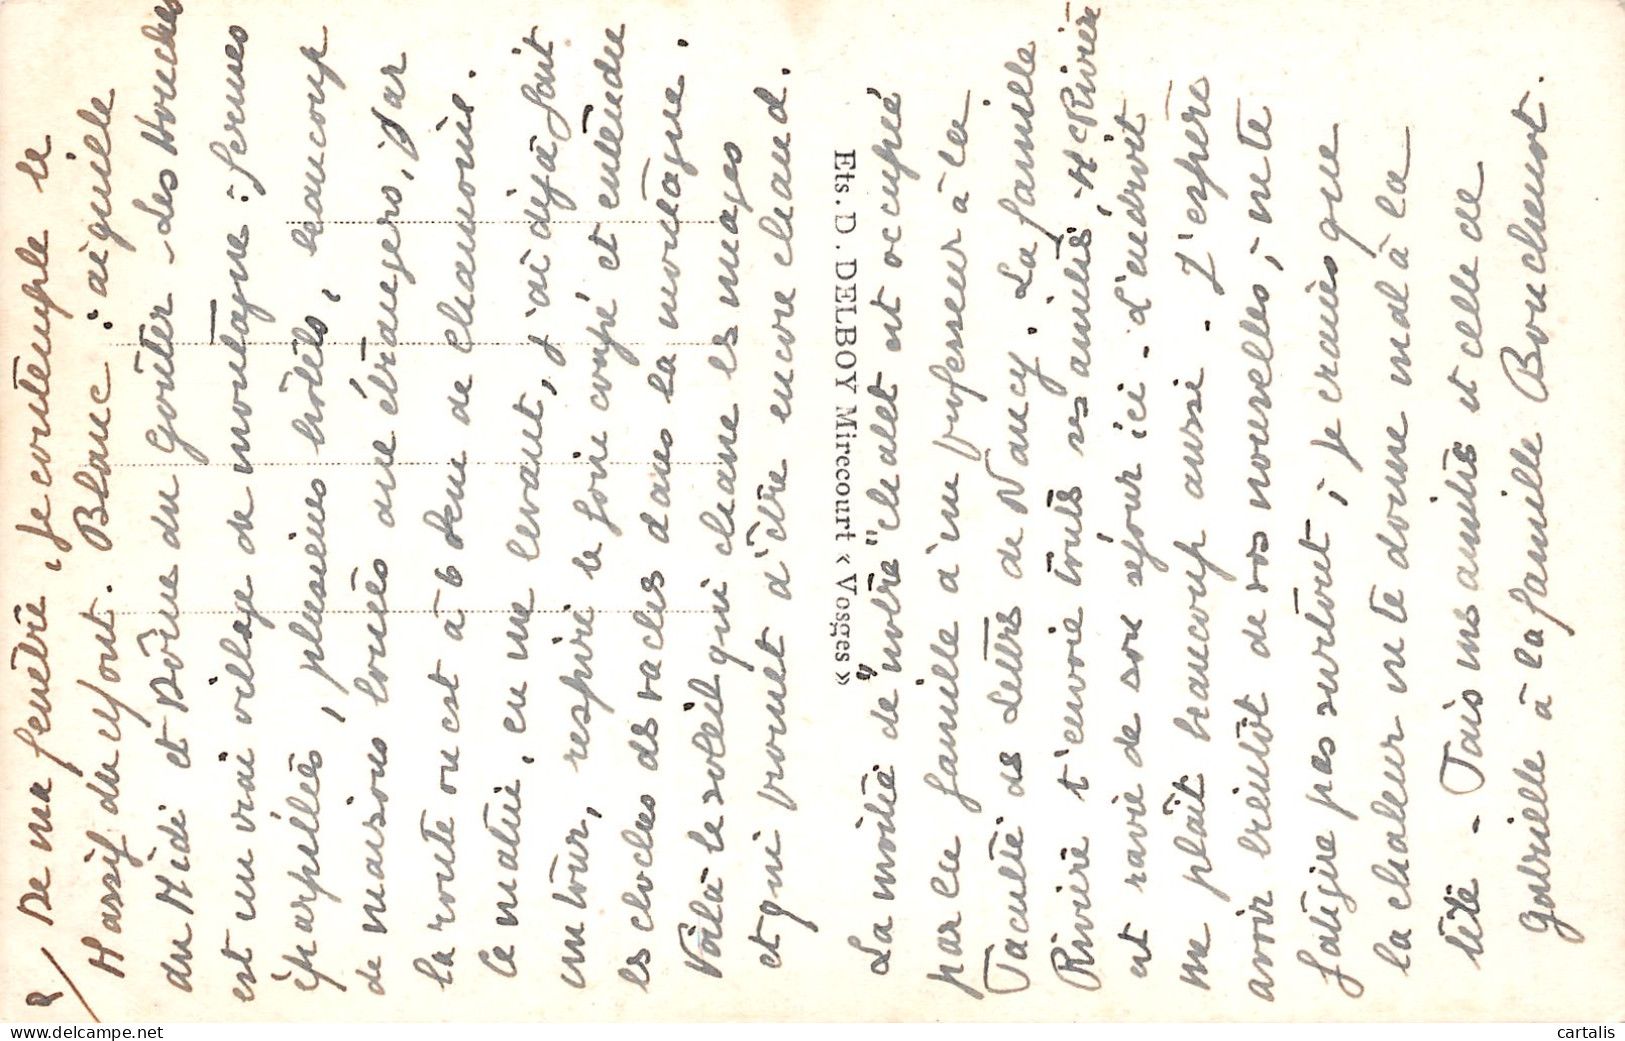 2/ De ma fenêtre, je contemple le
Massif du Mont. Blanc : aiguille
du Midi et Dôme du Goûter. Les Houches
est un vrai village de montagne : fermes
éparpillées, plusieurs hôtels, beaucoup
de maisons louées aux étrangers, par
la route on est à 6 km de Chamonix.
Ce matin, en me levant, j'ai déjà fait
un tour, respiré le foin coupé et entendu
les cloches des vaches dans la montagne.
Voilà le soleil qui chasse les nuages
et qui promet d'être encore chaud.
Ets. D. DELBOY Mirecourt « Vosges »
La moitié de "notre" chalet est occupé
par la famille d'un professeur à la
Faculté des Lettres de Nancy. La famille
Rivière t'envoie toutes ses amitiés, Me Rivière
est ravie de son séjour ici - L'endroit
me plaît beaucoup aussi. J'espère
avoir bientôt de vos nouvelles, ne te
fatigue pas surtout, je crains que
la chaleur ne te donne mal à la
tête - Fais mes amitiés et celle de
Gabrielle à la famille Bouchenot.
cartalis